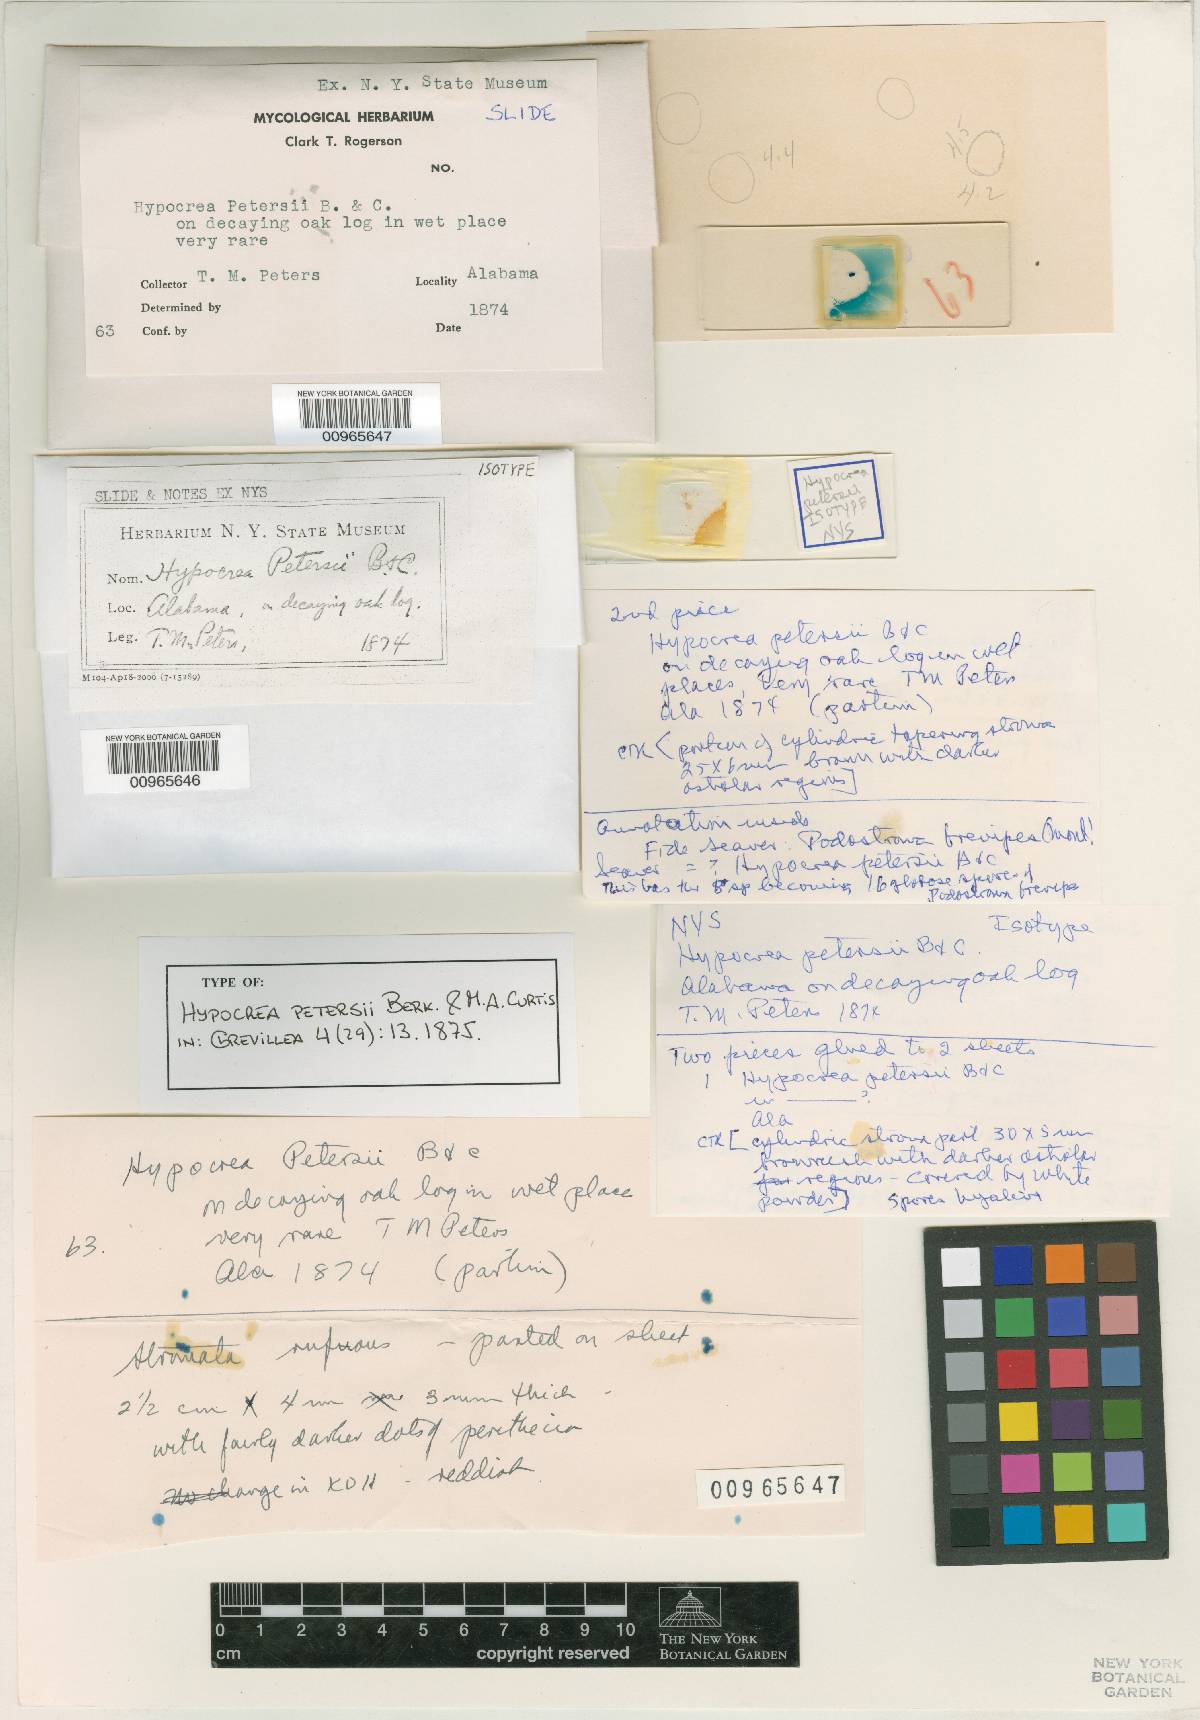 Ex. N. Y. State Museum
MYCOLOGICAL HERBARIUM
SLIDE
Clark T. Rogerson
NO.
Hypocrea Petersii B. & C.
on decaying oak log in wet place
very rare
Collector T. M. Peters
Locality Alabama
Determined by
1874
63 Conf. by
Date
NEW YORK BOTANICAL GARDEN
00965647
4.4
4.5
4.2
63
ISOTYPE
SLIDE & NOTES EX NYS
HERBARIUM N. Y. STATE MUSEUM
Nom. Hypocrea Petersii B&C.
Loc. Alabama, on decaying oak log.
Leg. T. M. Peters, 1874
M104-Ap18-2000 (7-15289)
NEW YORK BOTANICAL GARDEN
00965646
Hypocrea
petersii
ISOTYPE
NYS
2nd piece
Hypocrea petersii B&C
on decaying oak log in wet
places, very rare TM Peters
Ala 1874 (partim)
CTR [portion of cylindric tapering stroma
25 x 6 mm brown with darker
ostiolar regions]
Annotation
Fide Seaver: Podostroma brevipes (Mont)
Seaver = ? Hypocrea petersii B&C
This has the 8 sp becoming 16 globose spores of
Podostroma brevipes
NYS Isotype
Hypocrea petersii B&C.
Alabama on decaying oak log
T. M. Peters 1874
Two pieces glued to 2 sheets
1 Hypocrea petersii B&C
in ——— ?
Ala
CTR [cylindric stroma part 30 x 5 mm
brownish with darker ostiolar
regions - covered by white
powder] spores hyaline
TYPE OF:
HYPOCREA PETERSII BERK. & M.A. CURTIS
IN: GREVILLEA 4(29): 13. 1875.
Hypocrea Petersii B & C
on decaying oak log in wet place
63. very rare T M Peters
Ala 1874 (partim)
Stromata rufuous - pasted on sheet
2 1/2 cm X 4 mm 3 mm thick -
with fairly darker dots of perithecia
No change in KOH - reddish
00965647
0 1 2 3 4 5 6 7 8 9 10
cm copyright reserved
THE NEW YORK
BOTANICAL GARDEN
NEW YORK
BOTANICAL
GARDEN